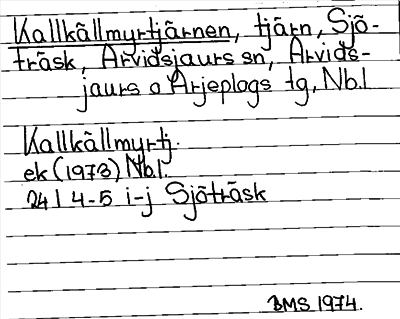 Kallkällmyrtjärnen, tjärn, Sjö-
träsk, Arvidsjaurs sn, Arvids-
jaurs o Arjeplogs tg, Nbl
Kallkällmyrtj.
ek (1973) Nbl.
24 I 4-5 i-j Sjöträsk
BMS 1974.